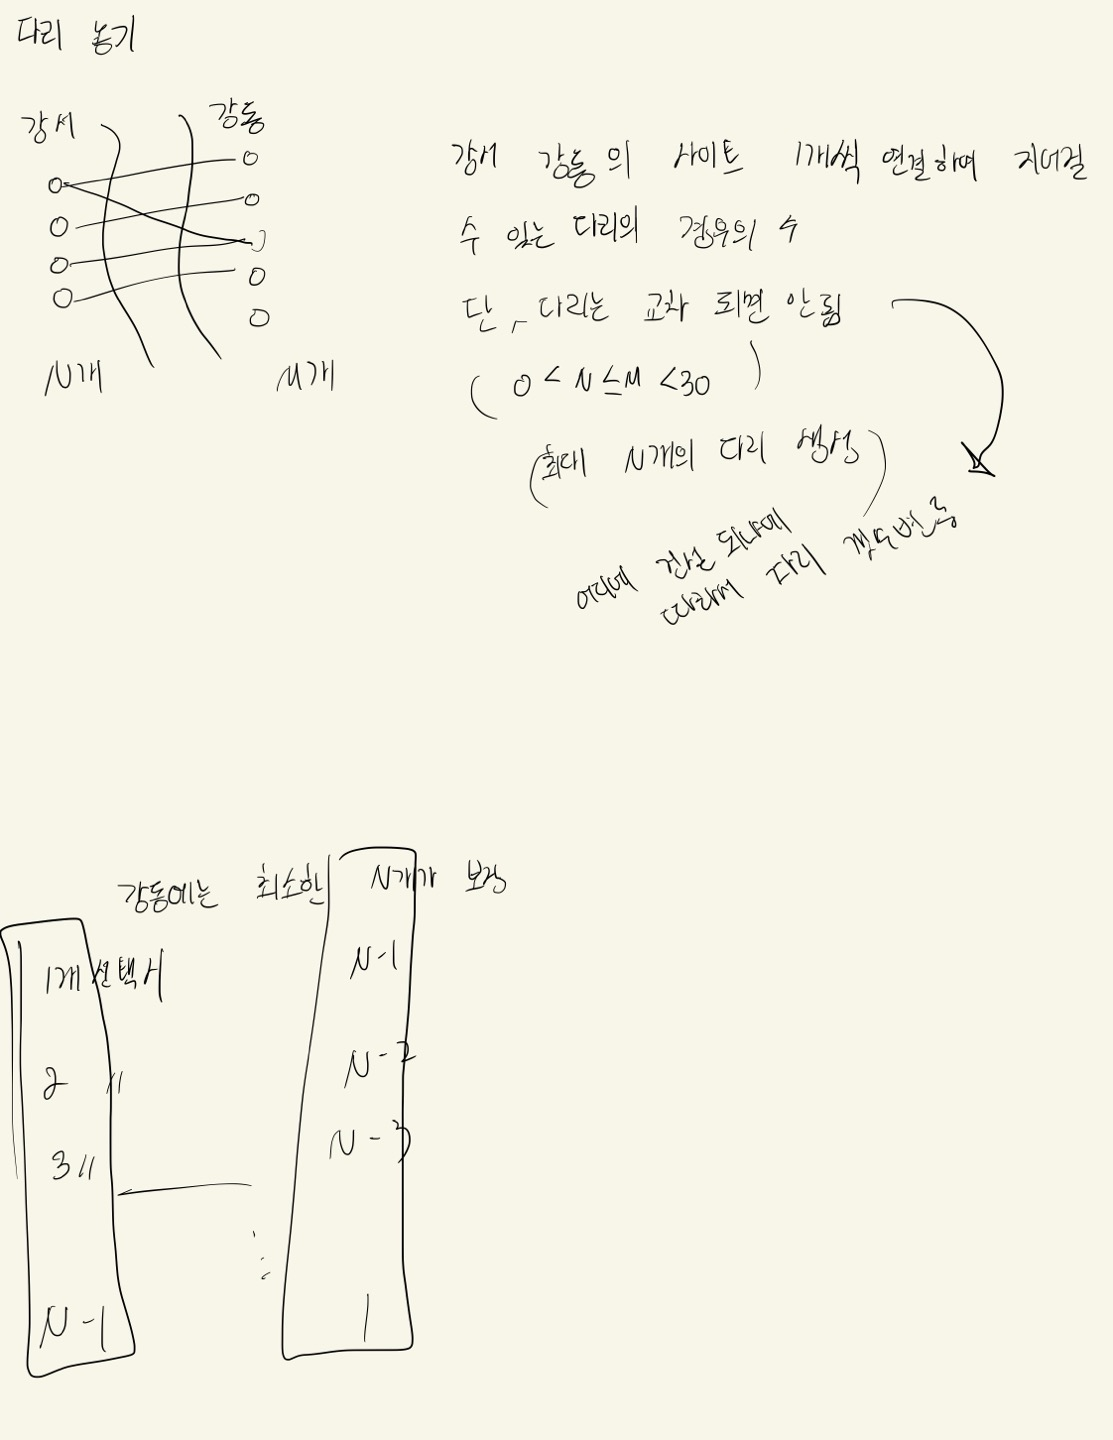 다리 놓기
강서 강동
N개 M개
강서 강동의 사이트 1개씩 연결하며 지어질
수 있는 다리의 경우의 수
단, 다리는 교차 되면 안됨
( 0 < N ≤ M < 30 )
(최대 N개의 다리 생성)
어디에 건설 되냐에
따라서 다리 갯수변동
강동에는 최소한 N개가 보장
1개 선택시 N-1
2 〃 N-2
3 〃 N-3
N-1 1